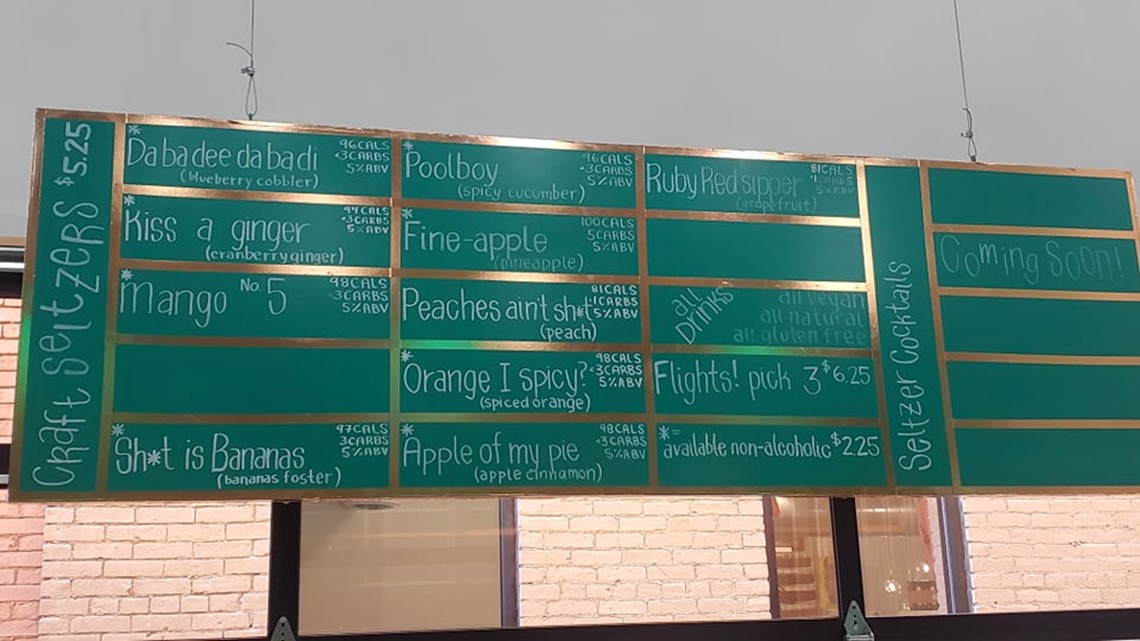 Craft Seltzers $5.25
*
Dabadee dabadi
(blueberry cobbler)
96CALS
<3CARBS
5%ABV
*
Kiss a ginger
(cranberry ginger)
94CALS
<3CARBS
5%ABV
*
Mango No. 5
98CALS
<3CARBS
5%ABV
*
Sh*t is Bananas
(bananas foster)
97CALS
3CARBS
5%ABV
*
Poolboy
(spicy cucumber)
96CALS
<3CARBS
5%ABV
*
Fine-apple
(pineapple)
100CALS
5CARBS
5%ABV
Peaches ain't sh*t
(peach)
81CALS
<1CARBS
5%ABV
*
Orange I spicy?
(spiced orange)
98CALS
<3CARBS
5%ABV
*
Apple of my pie
(apple cinnamon)
98CALS
<3CARBS
5%ABV
Ruby Red sipper
(grapefruit)
81CALS
<1CARBS
5%ABV
all
DRINKS
all vegan
all natural
all gluten free
Flights! pick 3 $6.25
*=
available non-alcoholic $2.25
Seltzer Cocktails
Coming Soon!